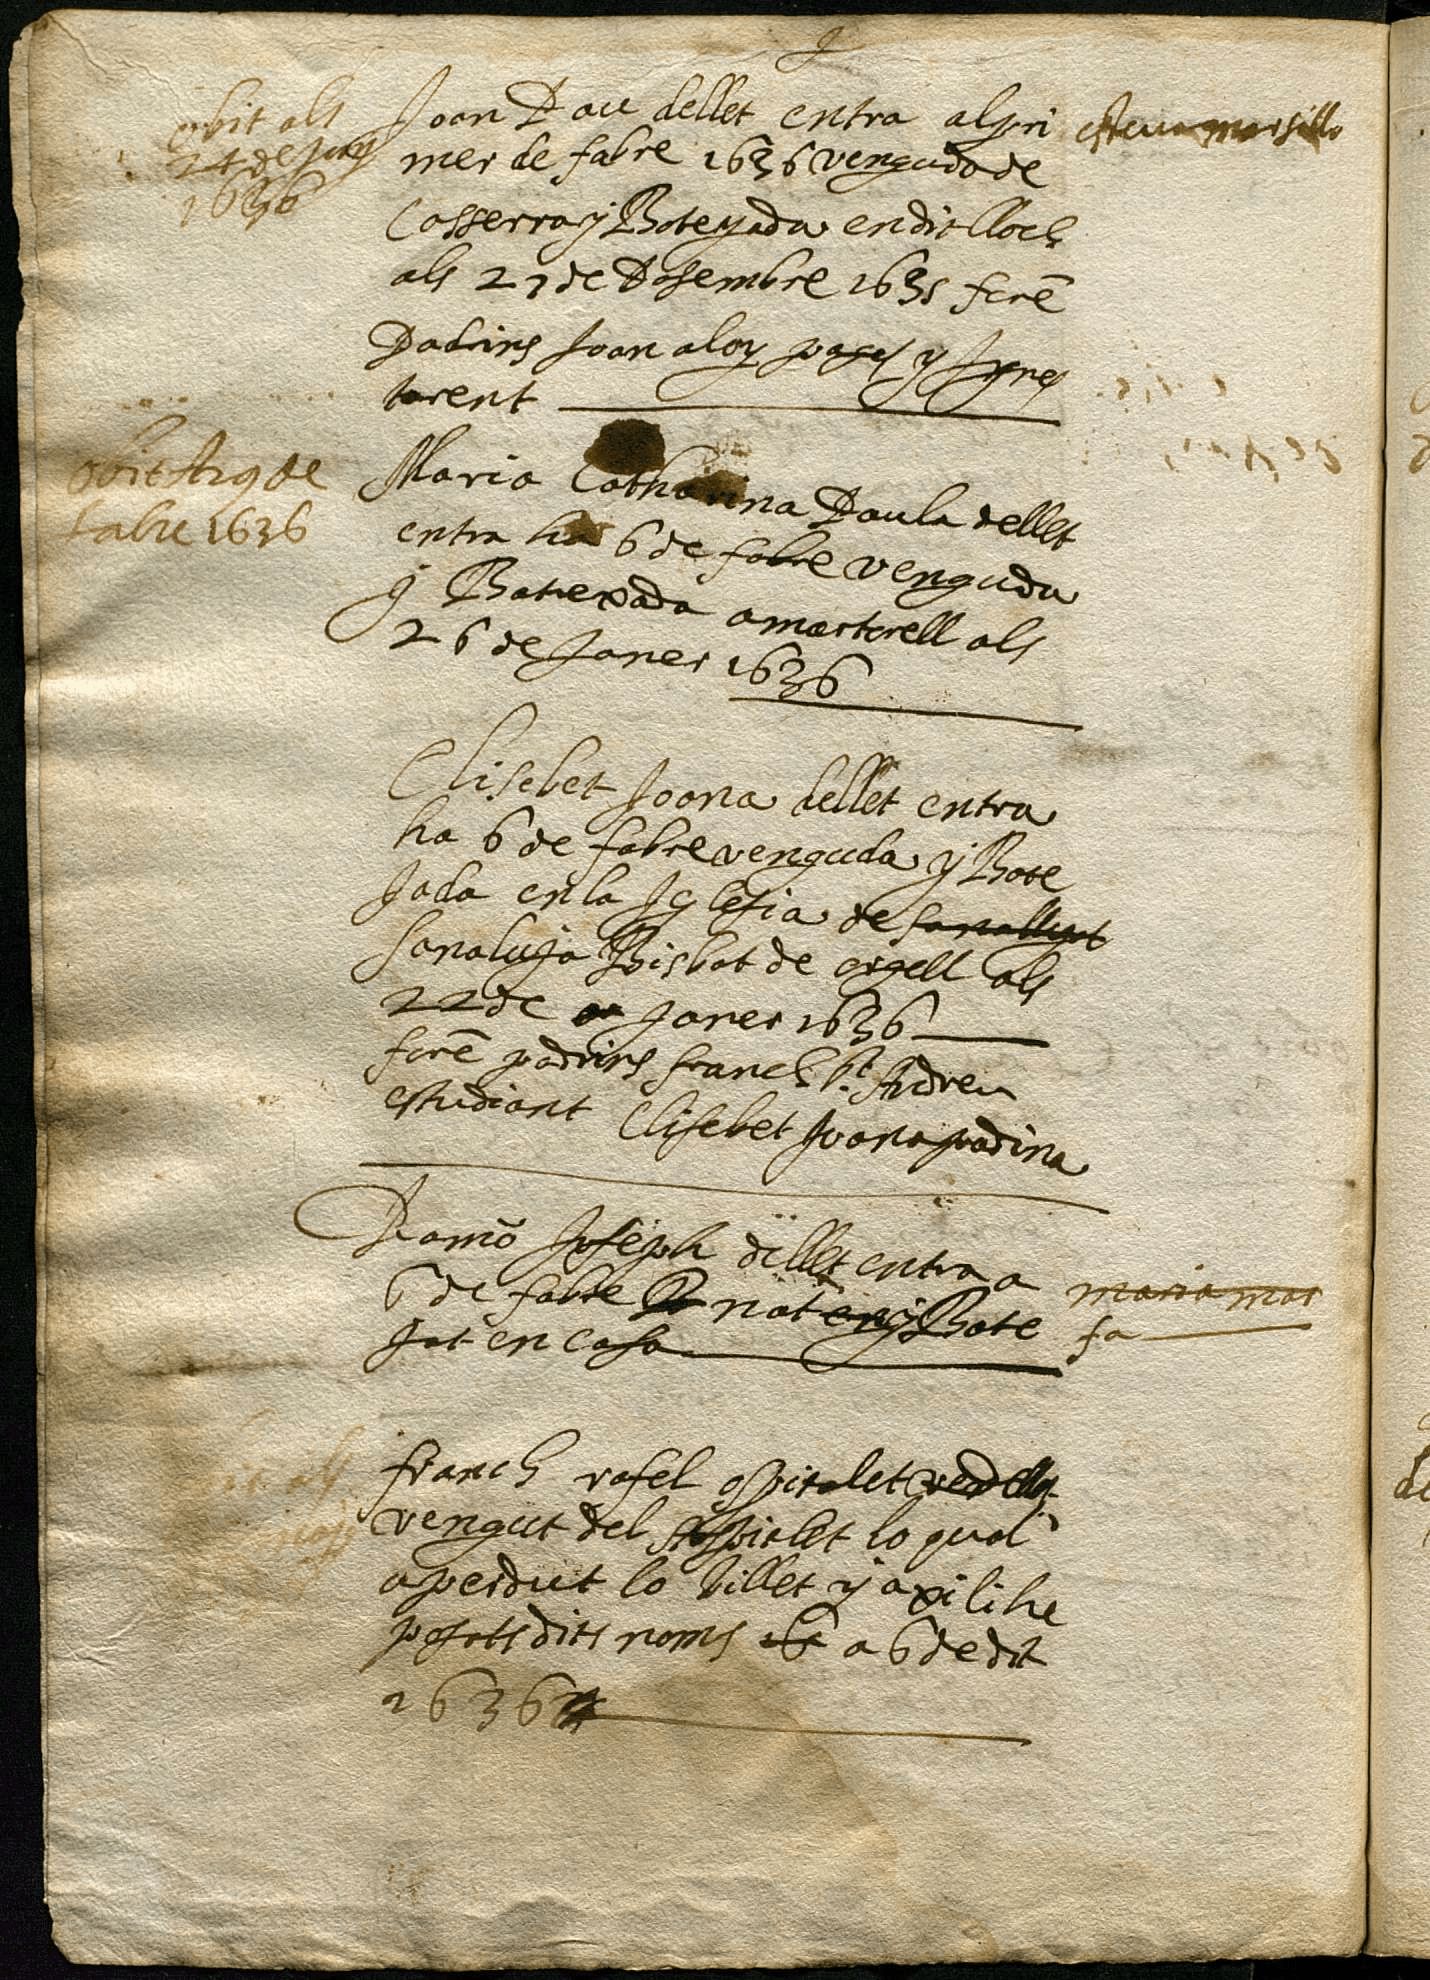 obit als
24 de juny
1636
Joan Pau dellet entra al pri
mer de fabre 1636 venguda de
Casserra y Bateyada en dit lloch
als 27 de Desembre 1635 forē
Padrins Joan aloy pages y Ygnes
torent
esteva marsillo
obit A 29 de
fabre 1636
Maria Catharina Paula dellet
entra ha 6 de fabre venguda
y Batexada a martorell als
26 de Janer 1636
Elisebet Joana dellet entra
ha 6 de fabre venguda y Bate
jada en la Iglesia de sanallu
sanaluja Bisbat de orgell als
22 de Janer 1636
forē padrins franch bt. Andreu
estudiant Elisebet Joana padrina
Ramō Joseph dellet entra a
6 de fabre nat en y Bate
jat en casa
maria mas
sa
als
franch rafel ospitalet de llet
vengut del Hospitlet lo qual
a perdut lo billet y axi li he
posats dits noms a 6 de dit
1636